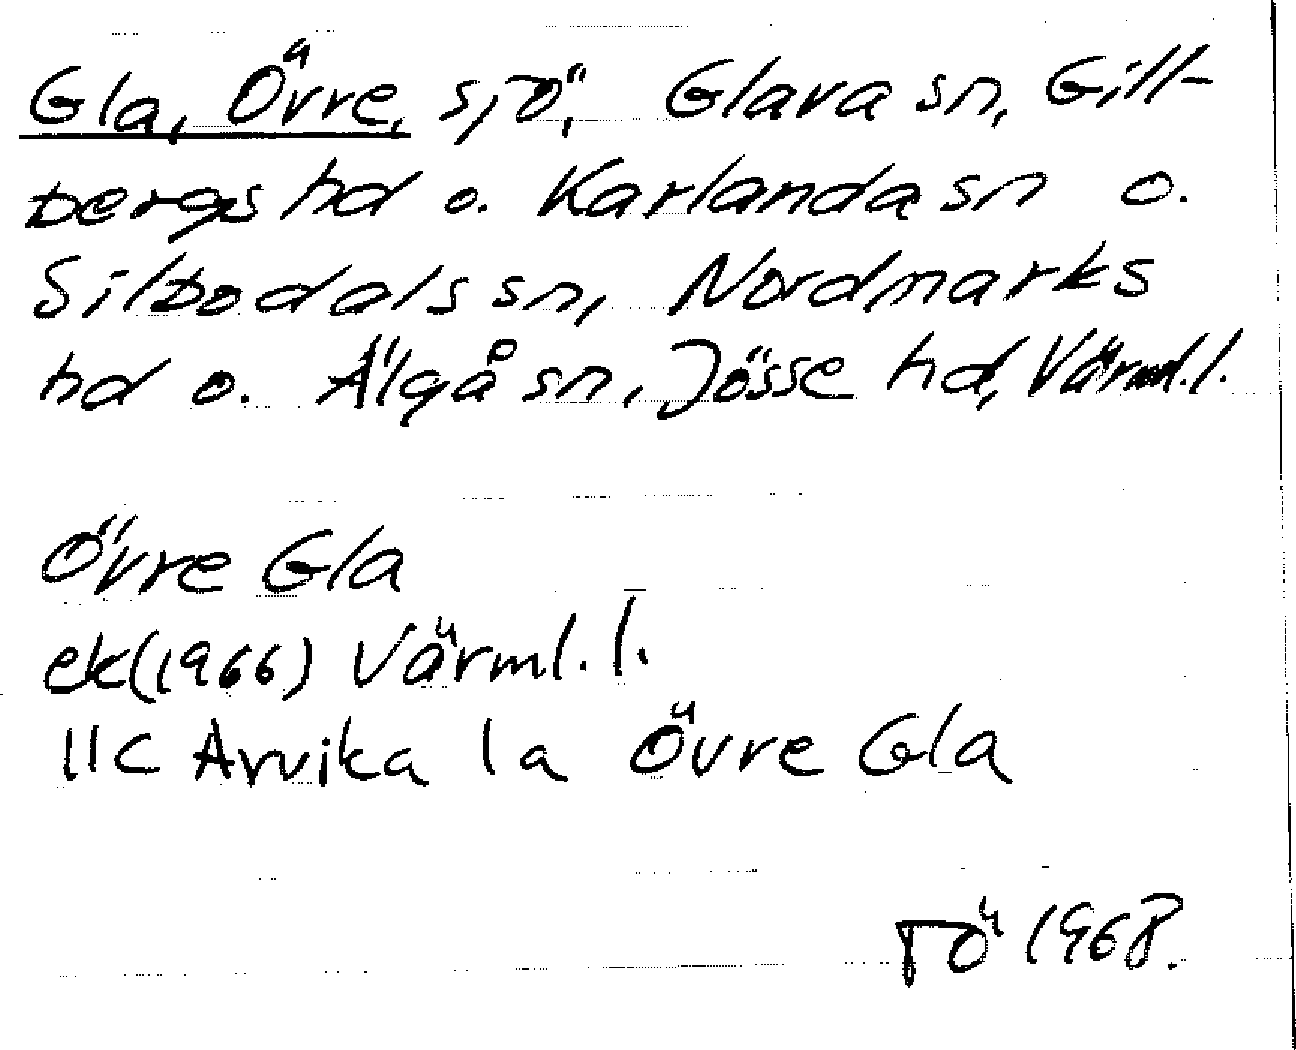 Gla, Övre, sjö, Glava sn, Gill-
bergs hd o. Karlanda sn o.
Silbodals sn, Nordmarks
hd o. Älgå sn, Jösse hd, Värml. l.
Övre Gla
ek(1966) Värml. l.
11C Arvika 1a Övre Gla
TÖ 1968.